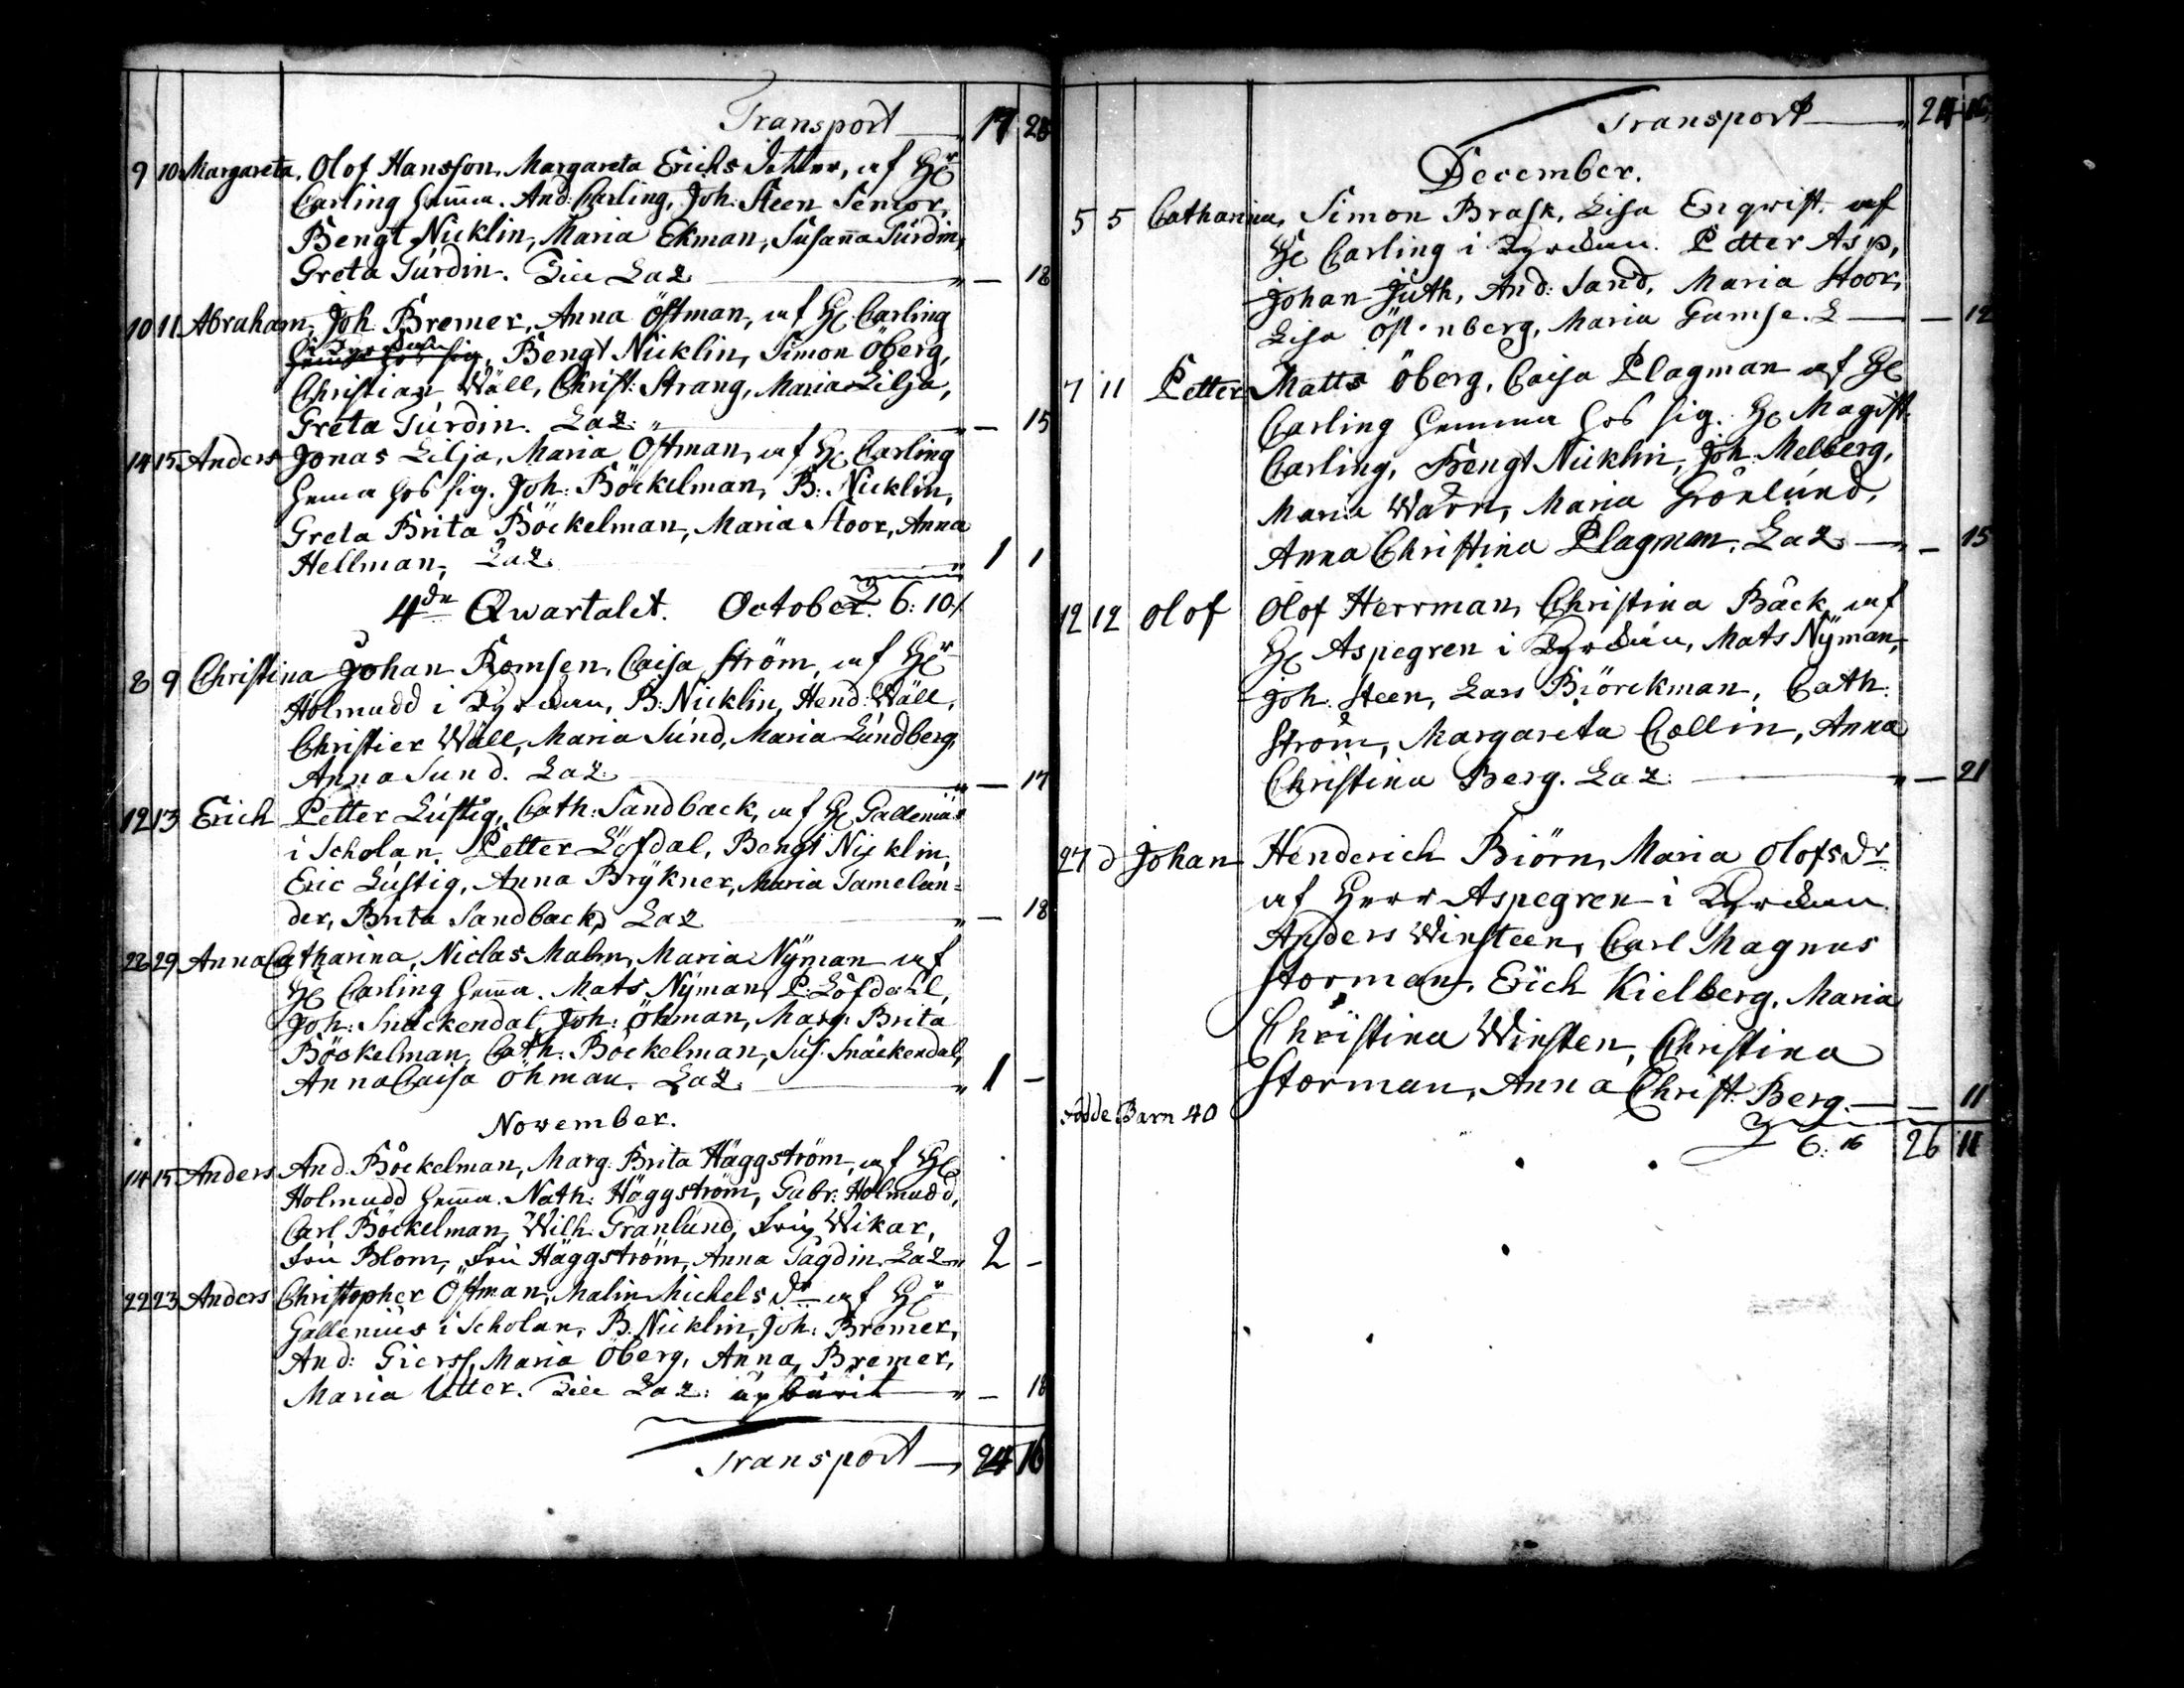 Transport 17 28
9 10 Margareta, Olof Hansson, Margareta Erichs Dotter, af Hr
Carling hemma. And: Carling, Joh: Steen Senior,
Bengt Nicklin, Maria Ekman, Susanna Turdin,
Greta Turdin. Till Laz. — 18
10 11 Abraham, Joh Bremer, Anna Östman, af H: Carling
i Kyrckan, Bengt Nicklin, Simon Öberg,
Christian Wäll, Christ: Strang, Maria Lilja,
Greta Turdin. Laz: — 15
14 15 Anders Jonas Lilja, Maria Östman, af H: Carling
hema hos sig. Joh: Böckelman, B: Nicklin,
Greta Brita Böckelman, Maria Stoor, Anna
Hellman, Laz. 1 1
4de Qwartalet. October. 6: 10/
8 9 Christina Johan Romsen, Caisa Ström, af Hr
Holmudd i Kyrckan, B: Nicklin, Hend: Wäll,
Christier Wäll, Maria Sund, Maria Lundberg,
Anna Sund. Laz: — 17
12 13 Erich Petter Lustig, Cath: Sandback, af H: Gallenius
i Scholan. Petter Löfdal, Bengt Nicklin,
Eric Lustig, Anna Brykner, Maria Tamelan=
der, Brita Sandback, Laz — 18
28 29 Anna Catharina, Niclas Malm, Maria Nÿman af
H: Carling hemma. Mats Nÿman, P: Löfdahl,
Joh: Snäckendal, Joh: Öhman, Marg: Brita
Böckelman, Cath: Böckelman, Sus: Snäckendal,
Anna Caisa Öhman. Laz. 1 —
November.
14 15 Anders And. Böckelman, Marg: Brita Häggström, af H:
Holmudd hemma. Nath: Häggström, Gabr: Holmudd,
Carl Böckelman, Wilh: Granlund, Fru Wikar,
Fru Blom, Fru Häggström, Anna Tagdin. Laz 2 —
22 23 Anders Christopher Östman, Malin Michels Dr af Hr
Gallenius i Scholan, B. Nicklin, Joh: Bremer,
And: Gierss, Maria Öberg, Anna Bremer,
Maria Utter. Till Laz: upburit — 18
Transport 24 16
Transport 24 16
December.
5 5 Catharina, Simon Brask, Lisa Enqvist. af
H: Carling i Kyrckan. Petter Asp,
Johan Juth, And: Sand, Maria Stoor,
Lisa Maria Gumse. L — 12
7 11 Petter Matts Öberg, Caisa Plagman af H:
Carling hemma hos sig. H: Magist.
Carling, Bengt Nicklin, Joh: Melberg,
Maria Warn, Maria Grönlund,
Anna Christina Plagman. Laz. — 15
12 12 Olof Olof Herrman, Christina Bäck, af
H: Aspegren i Kyrckan, Mats Nÿman,
Joh: Steen, Lars Biörckman, Cath:
Ström, Margareta Collin, Anna
Christina Berg. Laz: — 21
27 d Johan Henderich Biörn, Maria Olofs Dr
af Herr Aspegren i Kyrckan
Anders Winsteen, Carl Magnus
Storman, Erich Kielberg, Maria
Christina Winsten, Christina
Storman, Anna Christ: Berg. — 11
Födde Barn 40
6: 16 26 11